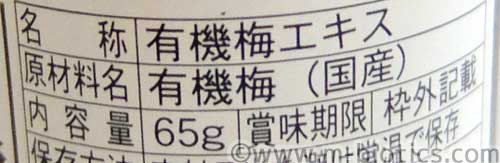 名称 有機梅エキス
原材料名 有機梅（国産）
内容量 65g 賞味期限 枠外記載
保存方法
常温で保存